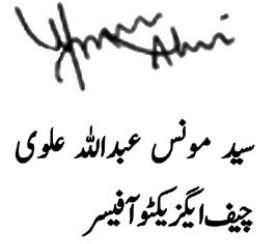 سید مونس عبداللہ علوی
چیف ایگزیکٹو آفیسر